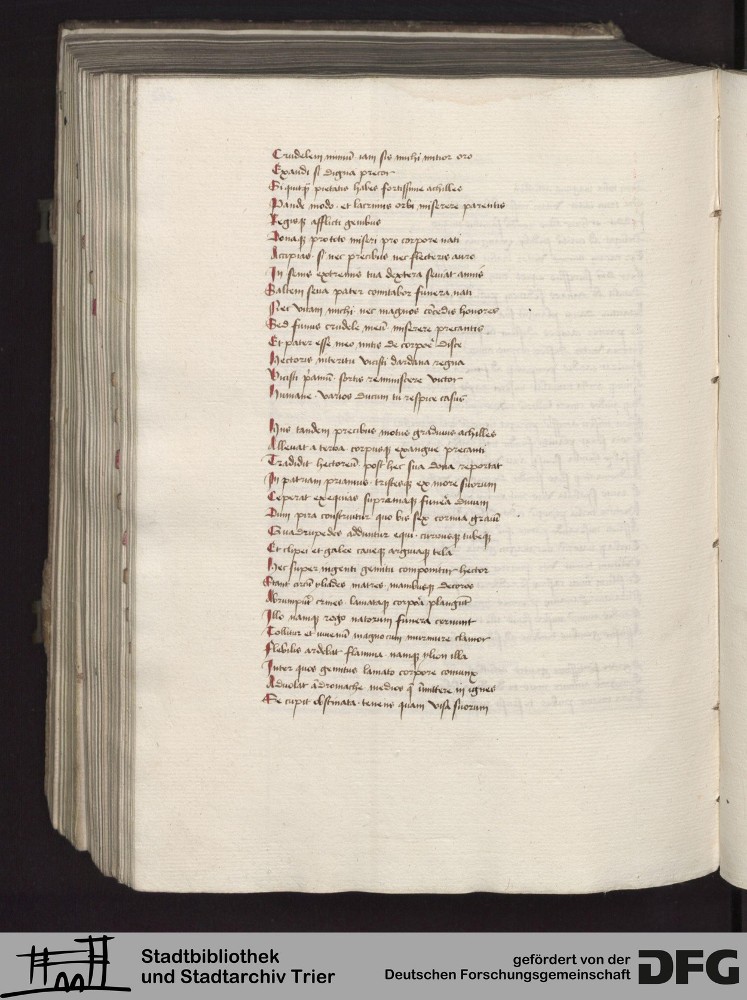 Crudelem nimiu iam sis michi mitior oro
Exaudi si digna precor
Si quitq pietatis habes fortissime achilles
Pande modo et lacrimis orbi miserere parentis
Regisq afflicti genibus
Donaq protecto miseri pro corpore nati
Accipias si nec precibus nec flecteris auro
In senis extremis tua dextera seuiat annis
Saltem seua pater comitabor funera nati
Nec vitam michi nec magnos cocedis honores
Sed funus crudele meu miserere precantis
Et pater esse meo mitis de corpore disce
Hectoris interitu vicisti dardana regna
Vicisti pamu sortis reminiscere victor
Humane varios ducum tu respice casus
Hiis tandem precibus motus gradiuus achilles
Alleuat a terra corpusq exangue precanti
Tradidit hectoreu post hec sua dona reportat
In patriam priamus tristesq ex more suorum
Ceperat exequias supremaq funera diuum
Dum pira construitur quo bis sex corpora graiu
Quadrupedes adduntur equi currusq tubeq
Et clipei et galee caueq arguiaq tela
Hec super ingenti gemitu componitur hector
Stant circu yliades matres manibusq decoros
Abrumput crines laniataq corpora plangut
Illo namq rogo natorum funera cernunt
Tollitur et iuuenu magno cum murmure clamor
Flebilis ardebat flamma namq ylion illa
Inter quos gemitus laniato corpore coniunx
Aduolat adromache medios q inmittere in ignes
Se cupit obstinata tenens quam visa suorum
Stadtbibliothek
und Stadtarchiv Trier
gefördert von der
Deutschen Forschungsgemeinschaft
DFG